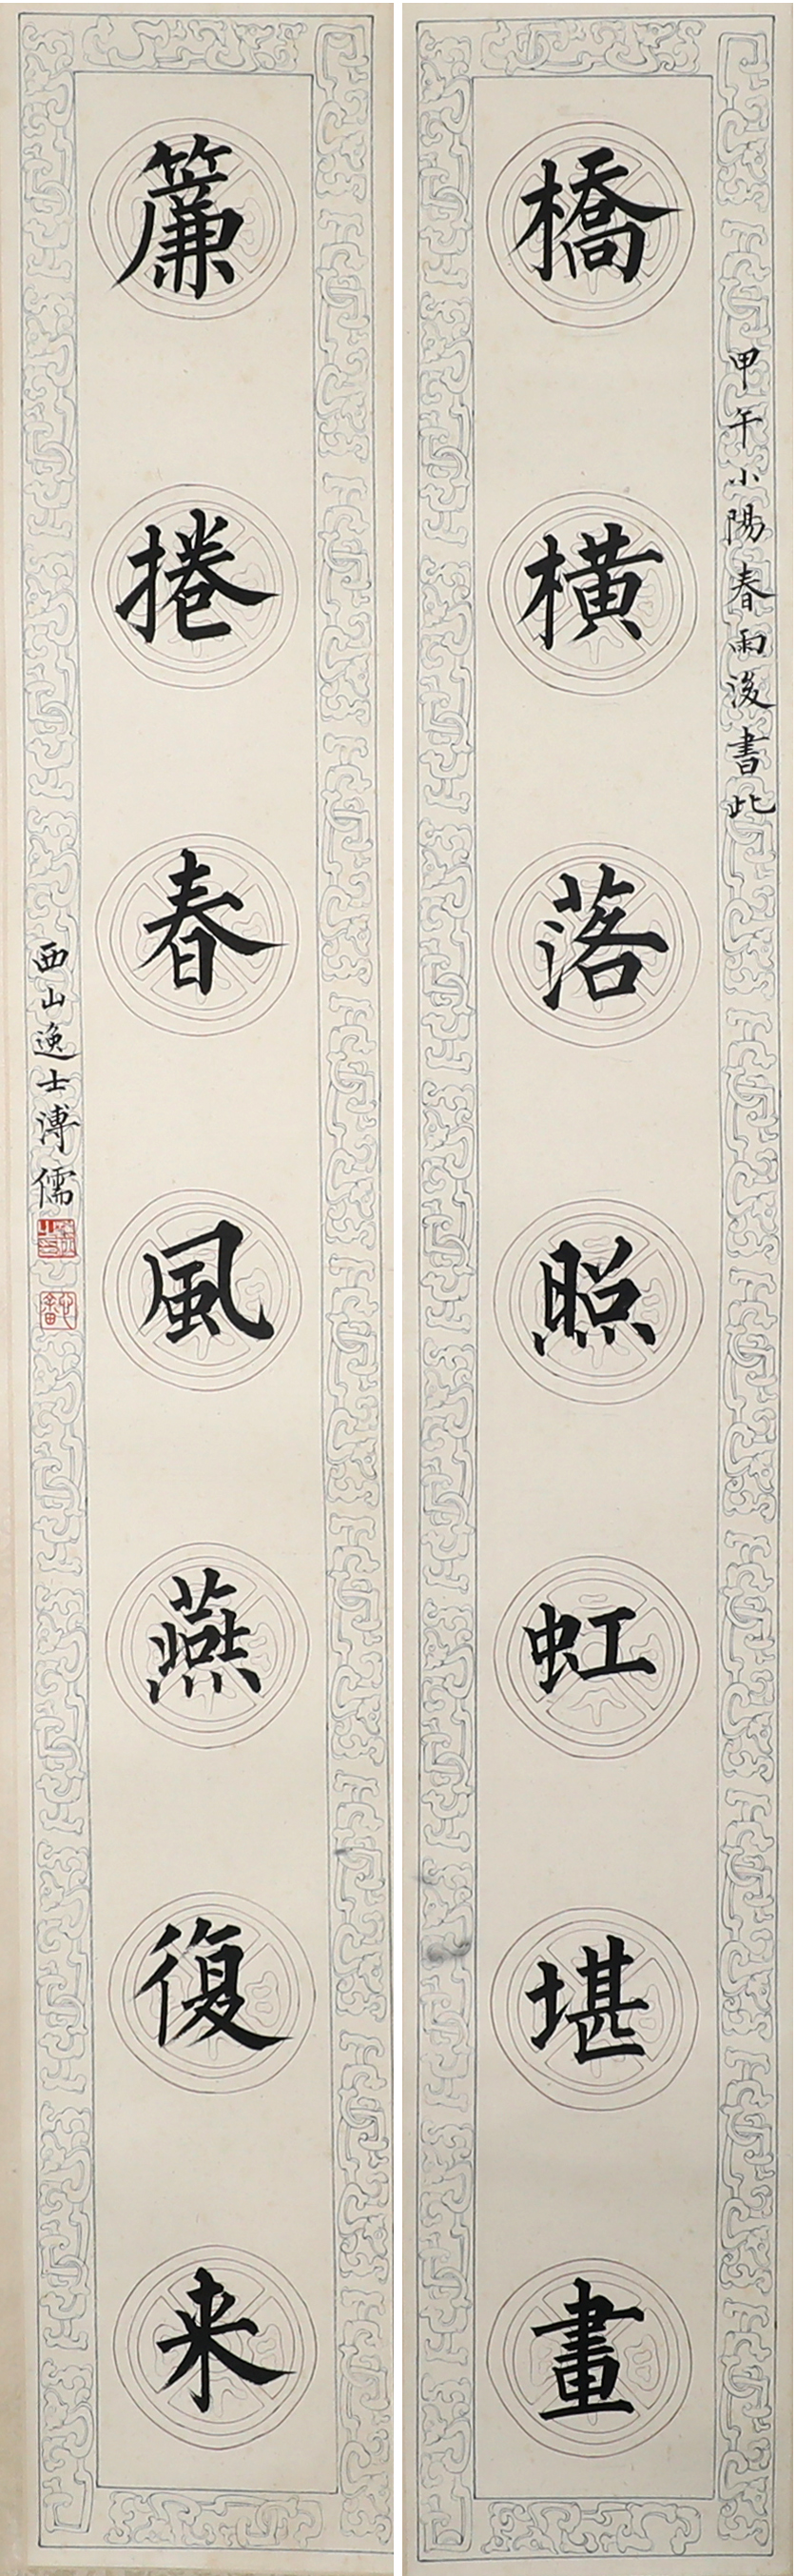 甲午小陽春雨後書此
橋橫落照虹堪畫
簾捲春風燕復来
西山逸士溥儒